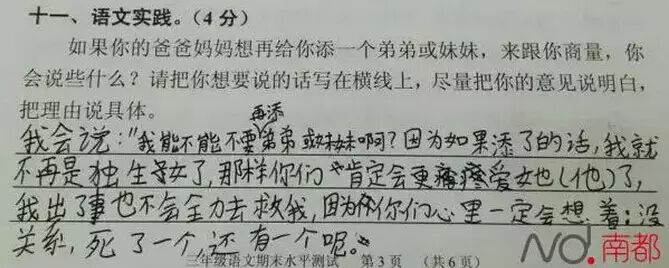 十一、语文实践。(4分)
如果你的爸爸妈妈想再给你添一个弟弟或妹妹，来跟你商量，你
会说些什么？请把你想要说的话写在横线上，尽量把你的意见说明白，
把理由说具体。
再添
我会说："我能不能不要弟弟或妹妹啊？因为如果添了的话，我就
不再是独生子女了，那样你们肯定会更疼爱她(他)了，
我出了事也不会全力去救我，因为你们心里一定会想着：没
关系，死了一个，还有一个呢。"
三年级语文期末水平测试 第3页 (共6页)
Nd.南都